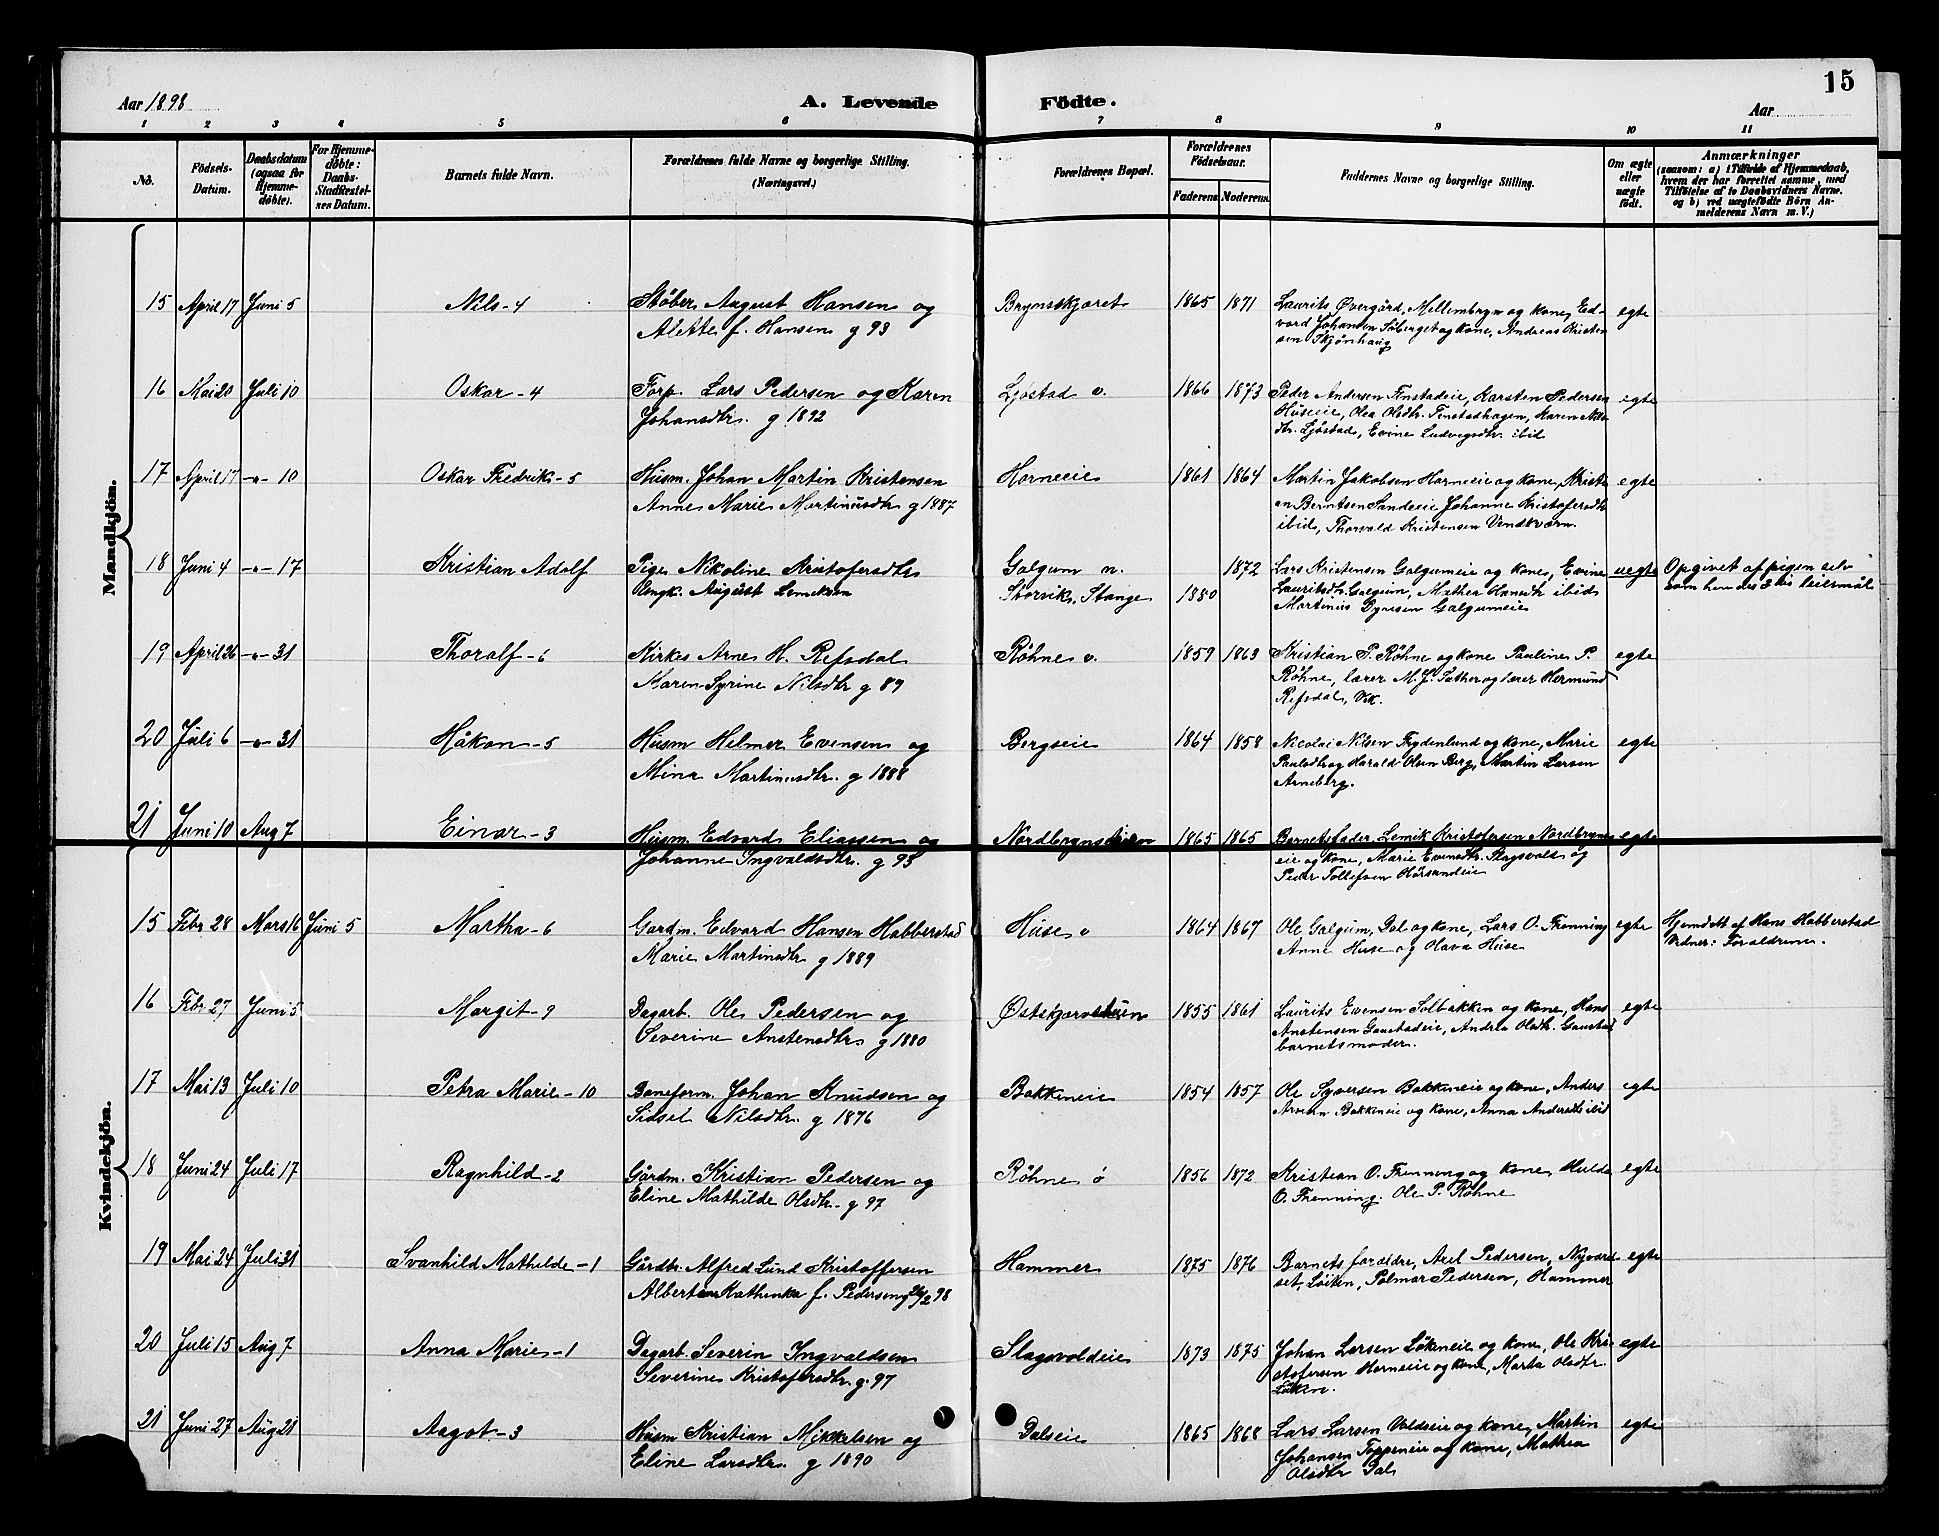 15
Aar 1898 A. Levende Födte. Aar
1 2 3 4 5 6 7 8 9 10 11
No. Födsels-Datum. Daabsdatum (ogsaa for Hjemme-döbte). For Hjemme-döbte: Daabs-Stadfæstelses Datum. Barnets fulde Navn. Forældrenes fulde Navne og borgerlige Stilling. (Næringsvei.) Forældrenes Bopæl. Forældrenes Födselsaar. Faderens Moderens. Faddernes Navne og borgerlige Stilling. Om ægte eller uægte födt. Anmærkninger (saasom: a) i Tilfælde af Hjemmedaab, hvem der har forrettet samme, med Tilföielse af to Daabsvidners Navne, og b) ved uægtefödte Börn Anmelderens Navn m. V.)
Mandkjön.
15 April 17 Juni 5 Nils - 4 Støber August Hansen og Brynsskjæret 1865 1871 Laurits Øvergård, Mellembryn og kone, Ed- egte
Alette f. Hansen g 93 vard Johansen Søberget og kone, Andreas Kristen
sen Skjønhaug
16 Mai 20 Juli 10 Oskar - 4 Forp. Lars Pedersen og Karen Ljøstad v. 1866 1873 Peder Andersen Finstadeie, Karsten Pedersen egte
Johansdtr. g 1892 Huseeie, Olea Olsdtr. Finstadhagen, Karen Nils
dtr. Ljøstad, Evine Ludvigsdtr. ibid
17 April 17 -"- 10 Oskar Fredrik - 5 Husm. Johan Martin Kristensen Horneeie 1861 1864 Martin Jakobsen Horneeie og kone, Krist- egte
Anne Marie Martinusdtr g 1887 en Berntsen Sandeeie Johanne Kristofersdtr
ibid, Thorvald Kristensen Vendkværn.
18 Juni 4 -"- 17 Kristian Adolf Pige Nikoline Kristofersdtr Galgum n. 1872 Lars Kristensen Galgumeie og kone, Evine uegte Opgivet af pigen selv
Ungk. August Lemeksen Storvik, Stange 1880 Lauritsdtr. Galgum, Mathea Hansdtr ibid som hendes 2det leiersmål
Martinus Dynesen Galgumeie
19 April 26 -"- 31 Thoralf - 6 Kirkes Arne H. Refsdal Røhne v. 1859 1863 Kristian P. Røhne og kone Pauline P. egte
Karen Syrine Nilsdtr g 89 Røhne, lærer M. J. Sæther og lærer Hermund
Refsdal, Vik.
20 Juli 6 -"- 31 Håkon - 5 Husm Helmer Evensen og Bergseie 1864 1858 Nicolai Nilsen Frydenlund og kone, Marie egte
Mina Martinusdtr. g 1888 Paulsdtr og Harald Olsen Berg, Martin Larsen
Arneberg.
21 Juni 10 Aug 7 Einar - 3 Husm. Edvard Eliassen og Nordbrynseien 1865 1865 Barnets fader, Lemik Kristofersen Nordbryns egte
Johanne Ingvaldsdtr. g 93 eie og kone, Marie Evensdtr. Slagsvold og
Peder Tollefsen Horsandeie
Kvindekjön.
15 Febr 28 Mars 16 Juni 5 Martha - 6 Gardm. Edvard Hansen Habberstad Huse v 1864 1867 Ole Galgum, Dal og kone, Lars O. Frenning egte Hjemdøbt af Hans Habberstad
Marie Martinsdtr. g 1889 Anne Huse og Olava Huse Vidner: Foraldrene.
16 Febr 27 Juni 5 Margit - 9 Dagarb. Ole Pedersen og Østskjærstuen 1855 1861 Laurits Evensen Solbakken og kone, Hans egte
Severine Anstensdtr. g 1880 Anstensen Gaustadeie, Andrea Olsdtr. Gaustad
barnets moder.
17 Mai 13 Juli 10 Petra Marie - 10 Baneform. Johan Knudsen og Bakkeneie 1854 1857 Ole Syversen Bakkeneie og kone, Anders egte
Sidsel Nilsdtr. g 1876 Arnesen Bakkeneie og kone, Anna Andersdtr ibid
18 Juni 24 Juli 17 Ragnhild - 2 Gårdm. Kristian Pedersen og Røhne ø 1856 1872 Kristian O. Frenning og kone Hulda egte
Eline Mathilde Olsdtr. g 97 O. Frenning. Ole P. Røhne
19 Mai 24 Juli 31 Svanhild Mathilde - 1 Gårdbr. Alfred Lund Kristoffersen Hammer 1875 1876 Barnets foraldre, Axel Pedersen, Nyvard egte
Albertine Kathinka f. Pedersen g 26/2 98 set, Løiten, Palmar Pedersen, Hammer
20 Juli 15 Aug 7 Anna Marie - 1 Dagarb. Severin Ingvaldsen Slagsvoldeie 1873 1875 Johan Larsen Løkeneie og kone, Ole Kri- egte
Severine Kristofersdtr. g. 97 stofersen Horneeie og kone, Marta Olsdtr.
Løken.
21 Juni 27 Aug 21 Aagot - 3 Husm Kristian Mikkelsen og Dalseie 1865 1868 Lars Larsen Valdseie og kone, Martin egte
Eline Larsdtr. g 1890 Johansen Toppeneie og kone, Mathea
Olsdtr Dal